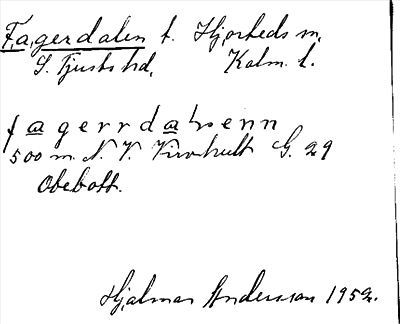 Fagerdalen t. Hjorteds sn.
S. Tjusts hd. Kalm. l.
fagerrdaɭenn
500 m N. V. Virshult G. 29
Obebott.
Hjalmar Andersson 1952.